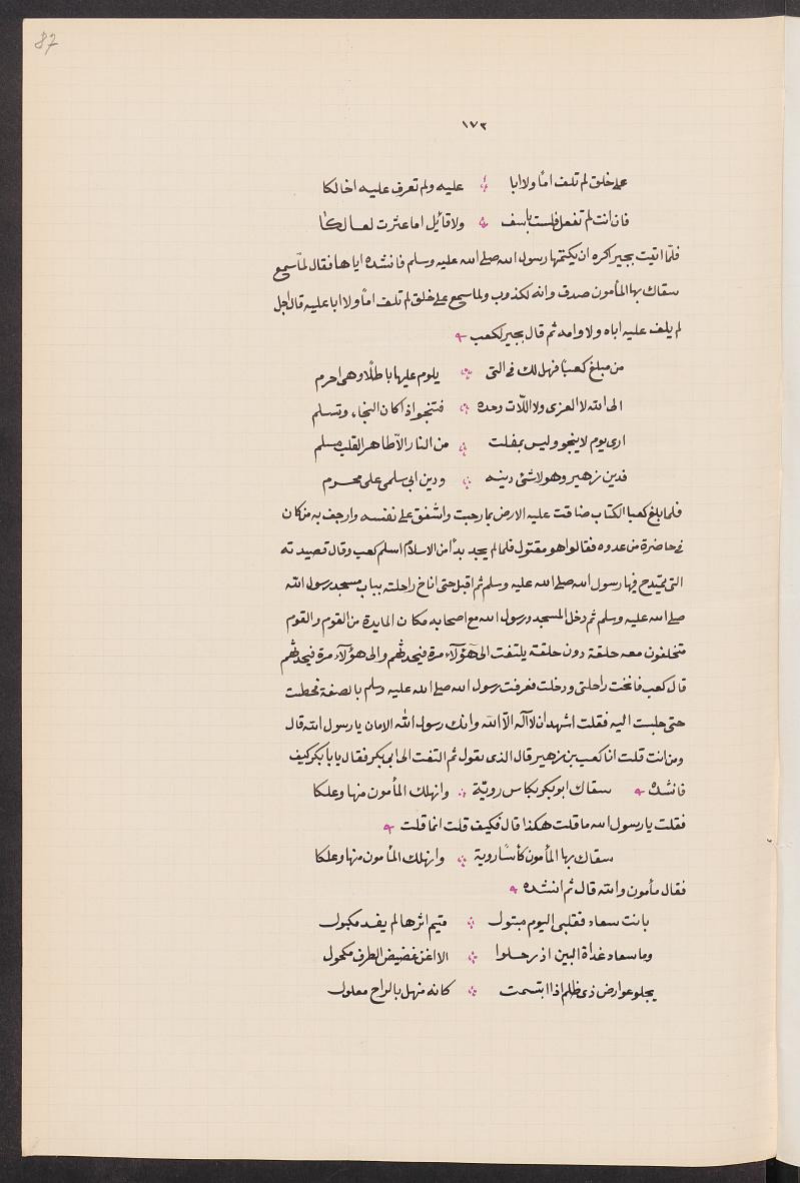 87
١٧٢
على خلق لم تلف اماً ولا ابا ؞ عليه ولم تعرف عليه اخا لكا
فان انت لم تفعل فلست بأسف ؞ ولا قائل اما عثرت لعا لكا
فلما اتيت بجير اكره ان يكتمها رسول الله صلى الله عليه وسلم فانشده اياها فقال لما سمع
سقاك بها المأمون صدق وانه لكذوب ولما سمع على خلق لم تلف اماً ولا ابا عليه قال اجل
لم يلف عليه اباه ولا وامه ثم قال بجير لكعب
من مبلغ كعباً فهل لك فى التى ؞ يلوم عليها باطلاً وهى احرم
الى الله لا العزى ولا اللّات وحده ؞ فتنجو اذا كان النجاء وتسلم
ارى يوم لا ينجو وليس بمفلت ؞ من النار الا طاهر القلب مسلم
فدين زهير وهو لا شئ دينه ؞ ودين ابى سلمى على محرم
فلما بلغ كعبا الكتاب ضاقت عليه الارض بما رحبت واشفق على نفسه وارجف به من كان
فى حاضرة من عدوه فقالوا هو مقتول فلما لم يجد بدّا من الاسلام اسلم كعب وقال قصيدته
التى يمتدح فيها رسول الله صلى الله عليه وسلم ثم اقبل حتى اناخ راحلته بباب مسجد رسول الله
صلى الله عليه وسلم ثم دخل المسجد ورسول الله مع اصحابه مكان المايدة من القوم والقوم
متحلفون معه حلقة دون حلقة يلتفت الى هؤلآء مرة فيحدثهم والى هؤلآء مرة فيحدثهم
قال كعب فانخت راحلتى ودخلت فعرفت رسول الله صلى الله عليه وسلم بالصفة تخطيت
حتى جلست اليه فقلت اشهد ان لا آله الّا الله وانك رسول الله الامان يا رسول الله قال
ومن انت قلت انا كعب بن زهير قال الذى يقول ثم التفت الى ابى بكر فقال يا بابكر كيف
فانشده سقاك ابو بكر بكاس رويّة ؞ وانهلك المأمون منها وعلكا
فقلت يا رسول الله ما قلت هكذا قال فكيف قلت انما قلت
سقاك بها المأمون كأسًا روية ؞ وانهلك المأمون منها وعلكا
فقال مأمون والله قال ثم انشده
بانت سعاد فقلبى اليوم مبتول ؞ متيم اثرها لم يفد مكبول
وما سعاد غداة البين اذ رحلوا ؞ الا اغن غضيض الطرف مكحول
يجلو عوارض ذى ظلم اذا ابتسمت ؞ كانه منهل بالراح معلول